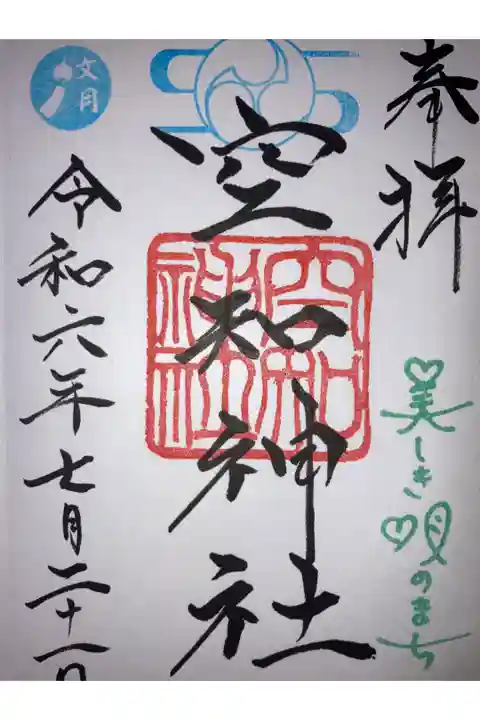 奉拝
♡美しき♡唄のまち
空知神社
空知神社
令和六年七月二十一日
文月